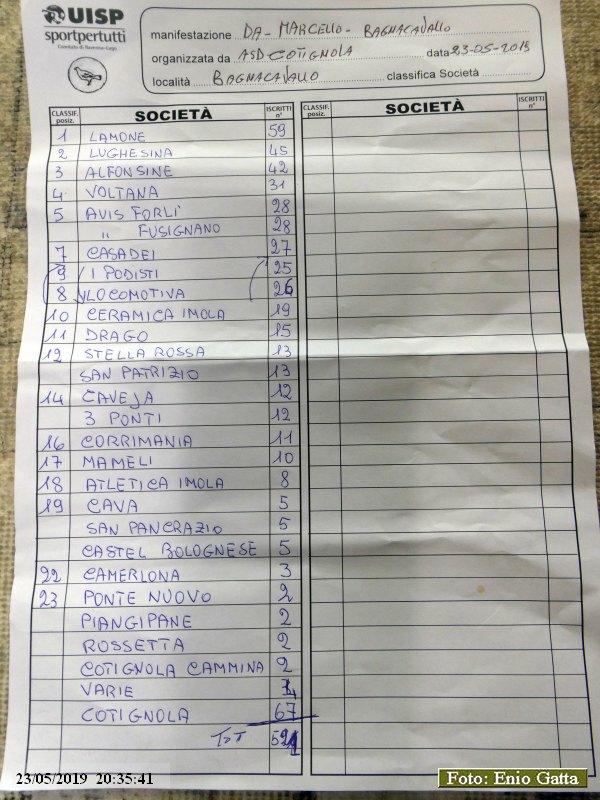 UISP
sportpertutti
Comitato di Ravenna-Lugo
manifestazione DA-MARCELLO-BAGNACAVALLO
organizzata da ASD COTIGNOLA data 23-05-2019
località BAGNACAVALLO classifica Società
CLASSIF. posiz. SOCIETÀ ISCRITTI n° CLASSIF. posiz. SOCIETÀ ISCRITTI n°
1 LAMONE 59
2 LUGHESINA 45
3 ALFONSINE 42
4 VOLTANA 31
5 AVIS FORLI' 28
" FUSIGNANO 28
7 CASADEI 27
9 I PODISTI 25
8 LOCOMOTIVA 26
10 CERAMICA IMOLA 19
11 DRAGO 15
12 STELLA ROSSA 13
SAN PATRIZIO 13
14 CAVEJA 12
3 PONTI 12
16 CORRIMANIA 11
17 MAMELI 10
18 ATLETICA IMOLA 8
19 CAVA 5
SAN PANCRAZIO 5
CASTEL BOLOGNESE 5
22 CAMERLONA 3
23 PONTE NUOVO 2
PIANGIPANE 2
ROSSETTA 2
COTIGNOLA CAMMINA 2
VARIE 4
COTIGNOLA 67
TOT 521
23/05/2019 20:35:41
Foto: Enio Gatta